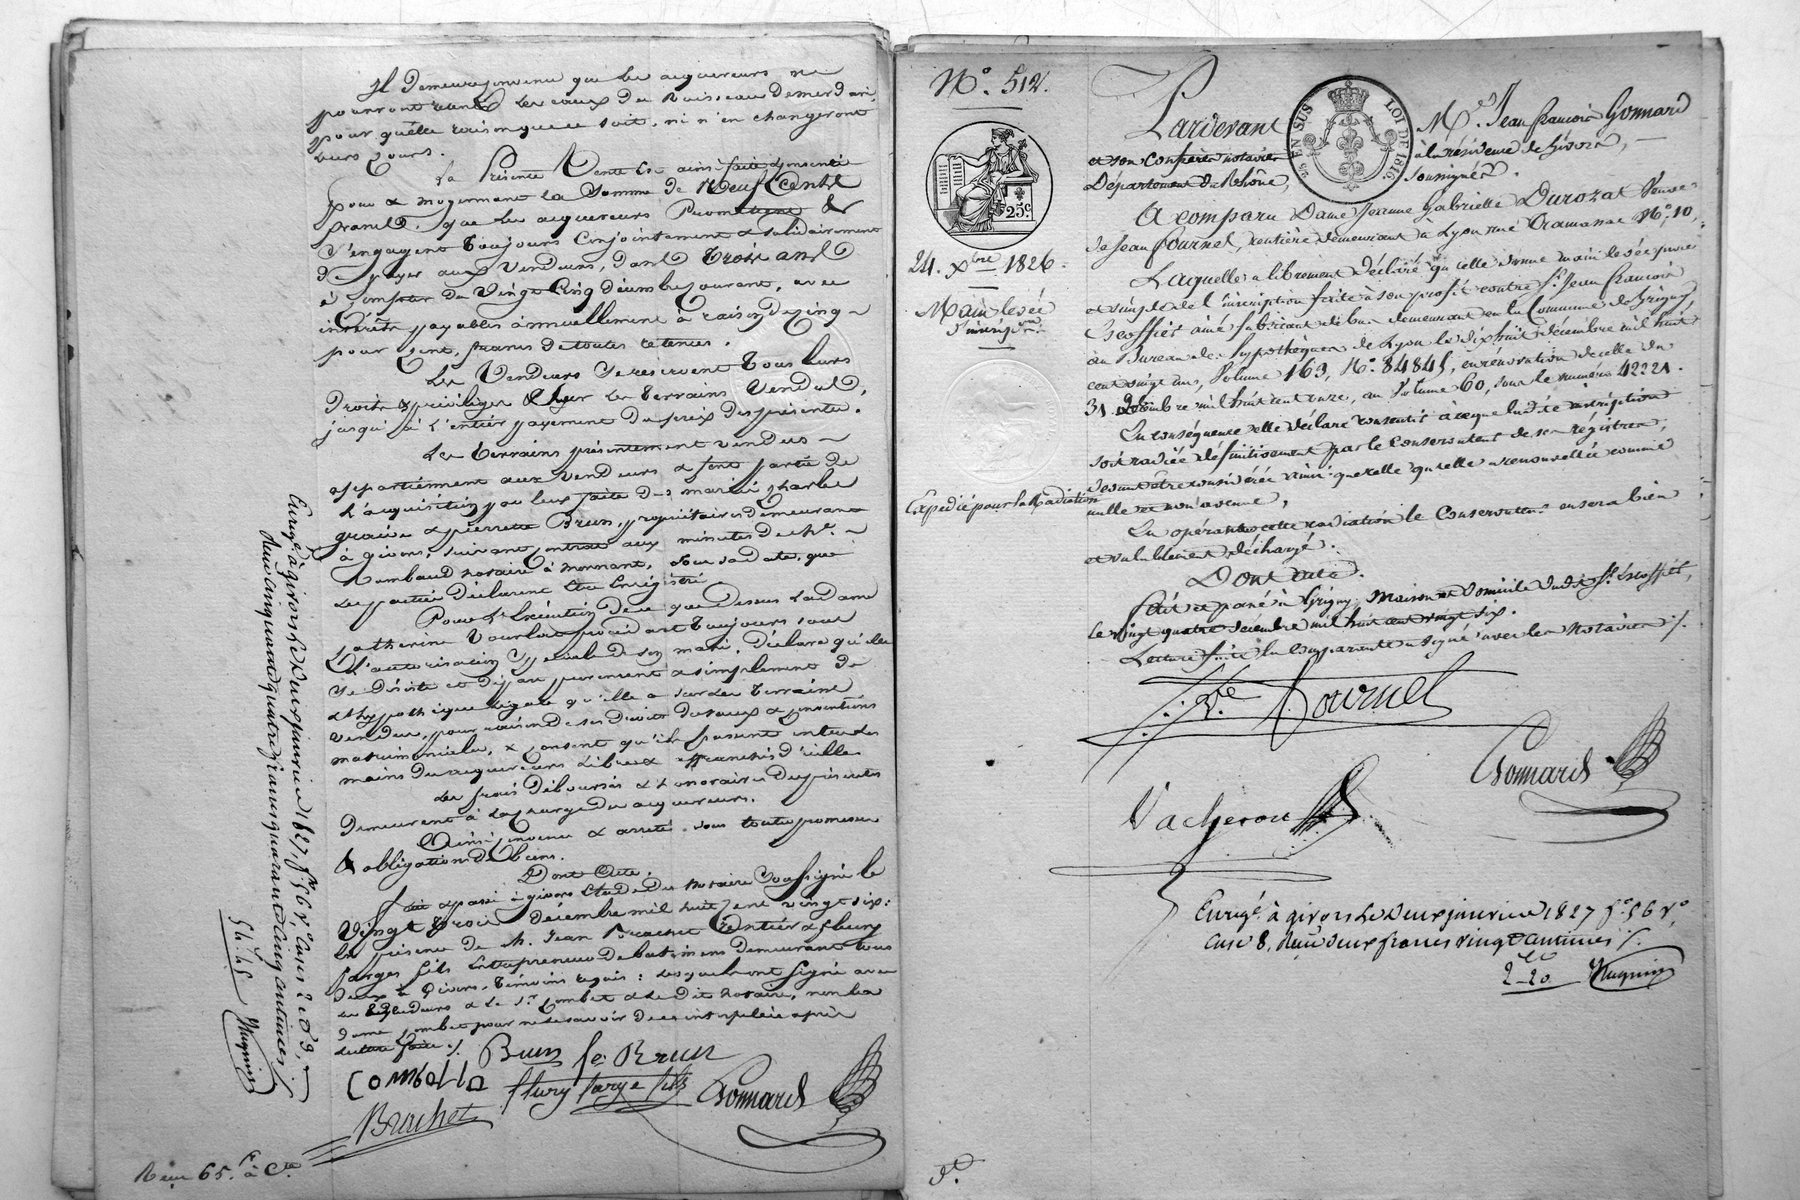 Il demeure convenu que les acquereurs ne
pourront tenir les eaux du Ruisseau demerdari,
pour quelle raison que ce soit, ni n'en changeront
leurs cours.
La Présente Vente est ainsi faite & consentie
pour & moyennant la Somme de Neuf Cents
francs, que les acquereurs Promettent &
s'engagent toujours Conjointement & solidairement
de payer aux vendeurs, dans trois ans
à Compter du Vingt Cinq décembre courant, avec
intérêts payables annuellement à raison de Cinq
pour Cent, francs de toutes retenues.
Les Vendeurs se reservent tous leurs
Droits & privilèges sur les terrains vendus,
jusqu'à l'entier payement du prix des présentes.
Les terrains présentement vendus
appartiennent aux vendeurs & font partie de
l'acquisition par eux faite des mariés Charles
& pierrette Brun, propriétaires demeurant
à givors, suivant contrat aux minutes de Me.
Rambaud notaire à mornant, sous sa date, que
les parties déclarent être Enrégistré
Pour l'Exécution de ce que dessus la dame
Catherine procédant toujours sous
l'autorisation Spéciale de son mari, déclare qu'elle
se désiste et départ purement & simplement de
l'hypothèque légale qu'elle a sur les terrains
vendus, pour raison de ses droits dotaux & conventions
matrimoniales, & consent qu'ils passent entre les
mains des acquereurs libres & affranchis d'icelles
Les frais déboursés & honoraires des présentes
demeurent à la charge des acquereurs.
Ainsi convenu & arrêté sous toutes promesses
& obligations de biens.
Dont Acte.
fait & passé à givors Etude du Notaire Soussigné le
Vingt trois décembre mil huit Cent vingt six:
En présence de M. Jean Brachet Rentier & fleury
farges fils Entrepreneur de batimens demeurant tous
deux à Givors, témoins requis: lesquels ont signé avec
les vendeurs & le Sr. Combet & le dit notaire, non la
dame Combet pour ne le savoir de ce interpellée après
lecture faite ./.
Brun fe. Brun
fleury farge fils Gonnard
Brachet
Enrigé. à givors le deux janvier 1827, fo. 56 ro. Cases 2 et 9,
Reçu cinquante quatre francs quarante cinq centimes ./.
54.45 Mugnier
Reçu 65. f à Cte
No. 512.
25c
24. Xbre 1826.
Main levée
d'inscripon.
Expédié pour la Radiation
Pardevant Me. Jean françois Gonnard
EN SUS LOI DE 1816
et son Confrère notaires à la résidence de Givors,
Département du Rhône, Soussignés.
A Comparu Dame Jeanne Gabrielle Durozat Veuve
de Jean Fournel, rentière demeurant à Lyon rue Tramassac No. 10,
Laquelle a librement déclaré qu'elle donne main levée pure
et simple de l'inscription faite à son profit contre Sr. Jean françois
Escoffier ainé fabricant de bas demeurant en la Commune de Grigny,
au Bureau des hypothèques de Lyon le dix huit décembre mil huit
cent vingt un, Volume 163, No. 84845, en renovation de celle du
31 décembre mil huit cent onze, au Volume 60, sous le numéro 42221.
En conséquence elle déclare consentir à ce que ladite inscription
soit radiée définitivement par le Conservateur de ses registres,
devant être considérée ainsi que celle qu'elle a renouvellée comme
nulle et non avenue,
En opérant cette radiation le Conservateur en sera bien
et valablement déchargé.
Dont Acte.
Fait et passé à Grigny, Maison et domicile dudit Sr. Escoffier,
le vingt quatre decembre mil huit cent vingt six.
Lecture faite la Comparante a signé avec les Notaires ./.
Ve Fournel
Gonnard
Vacheron
Enrigé. à givors le deux janvier 1827 fo. 56 vo.
Case 8, Reçu deux francs vingt centimes ./.
2-20 Mugnier